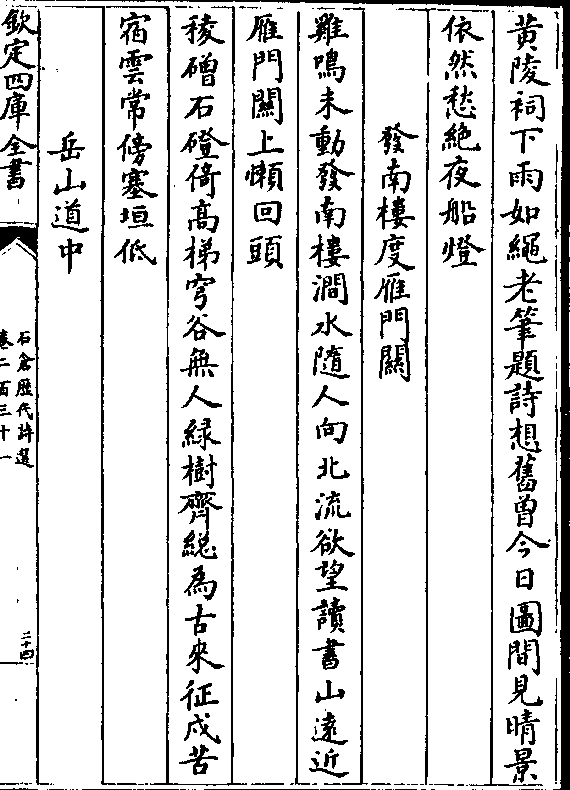 黄陵祠下雨如繩老筆題詩想舊曾今日圖間見晴景
依然愁絶夜船燈
發南樓度雁門關
雞鳴未動發南樓澗水隨人向北流欲望讀書山遠近
雁門關上懶回頭
稜磳石磴倚高梯穹谷無人緑樹齊總為古來征戍苦
宿雲常傍塞垣低
岳山道中
欽定四庫全書
石倉歴代詩選
卷二百三十一
二十四